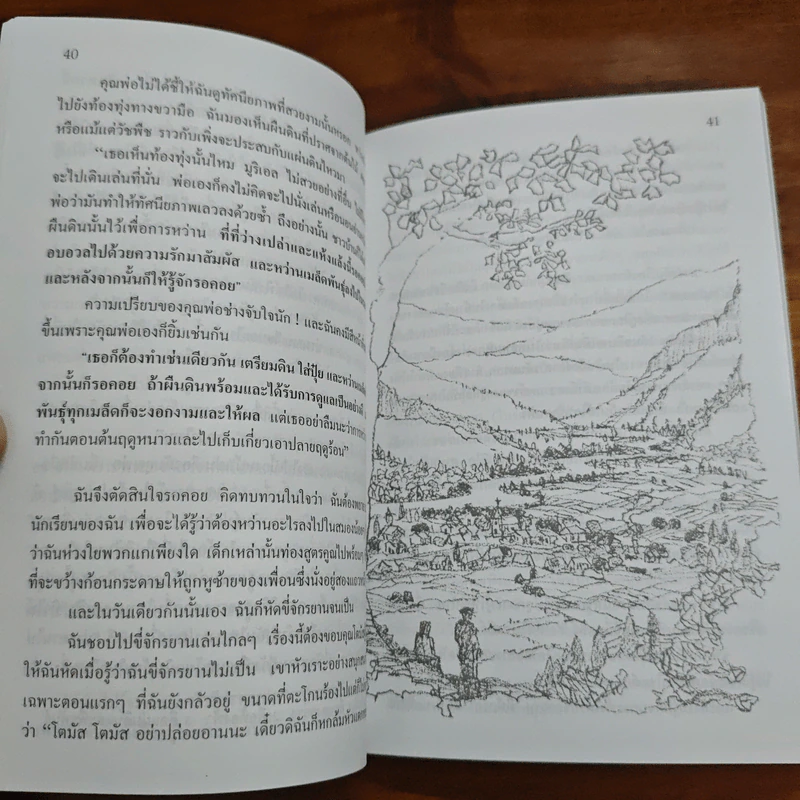 40
คุณพ่อไม่ได้ชี้ให้ฉันดูทัศนียภาพที่สวยงามนั้นหรอก
ไปยังท้องทุ่งทางขวามือ ฉันมองเห็นผืนดินที่ปราศจากต้นไม้
หรือแม้แต่วัชพืช ราวกับเพิ่งจะประสบกับแผ่นดินไหวมา
“เธอเห็นท้องทุ่งนั้นไหม มูริเอล ไม่สวยอย่างที่อื่น
จะไปเดินเล่นที่นั่น พ่อเองก็คงไม่คิดจะไปนั่งเล่นหรือนอน
พ่อว่ามันทำให้ทัศนียภาพเลวลงด้วยซ้ำ ถึงอย่างนั้น
ผืนดินนั้นไว้เพื่อการหว่าน ที่ที่ว่างเปล่าและแห้งแล้งนี้
อบอวลไปด้วยความรักมาสัมผัส และหว่านเมล็ดพันธุ์ลง
และหลังจากนั้นก็ให้รู้จักรอคอย”
ความเปรียบของคุณพ่อช่างจับใจนัก ! และฉันคงมีสีหน้า
ขึ้นเพราะคุณพ่อเองก็ยิ้มเช่นกัน
“เธอก็ต้องทำเช่นเดียวกัน เตรียมดิน ใส่ปุ๋ย และหว่าน
จากนั้นก็รอคอย ถ้าผืนดินพร้อมและได้รับการดูแลเป็นอย่าง
พันธุ์ทุกเมล็ดก็จะงอกงามและให้ผล แต่เธออย่าลืมนะว่า
ทำกันตอนต้นฤดูหนาวและไปเก็บเกี่ยวเอาปลายฤดูร้อน”
ฉันจึงตัดสินใจรอคอย คิดทบทวนในใจว่า ฉันต้อง
นักเรียนของฉัน เพื่อจะได้รู้ว่าต้องหว่านอะไรลงไปในสมอง
ว่าฉันห่วงใยพวกแกเพียงใด เด็กเหล่านั้นท่องสูตรคูณไป
ที่จะขว้างก้อนกระดาษให้ถูกหูซ้ายของเพื่อนซึ่งนั่งอยู่สองแถว
และในวันเดียวกันนั้นเอง ฉันก็หัดขี่จักรยานจนเป็น
ฉันชอบไปขี่จักรยานเล่นไกลๆ เรื่องนี้ต้องขอบคุณ
ให้ฉันหัดเมื่อรู้ว่าฉันขี่จักรยานไม่เป็น เขาหัวเราะอย่าง
เฉพาะตอนแรกๆ ที่ฉันยังกลัวอยู่ ขณะที่ตะโกนร้องไป
ว่า “โตมัส โตมัส อย่าปล่อยอานนะ เดี๋ยวดิฉันก็หกล้มหัว
41